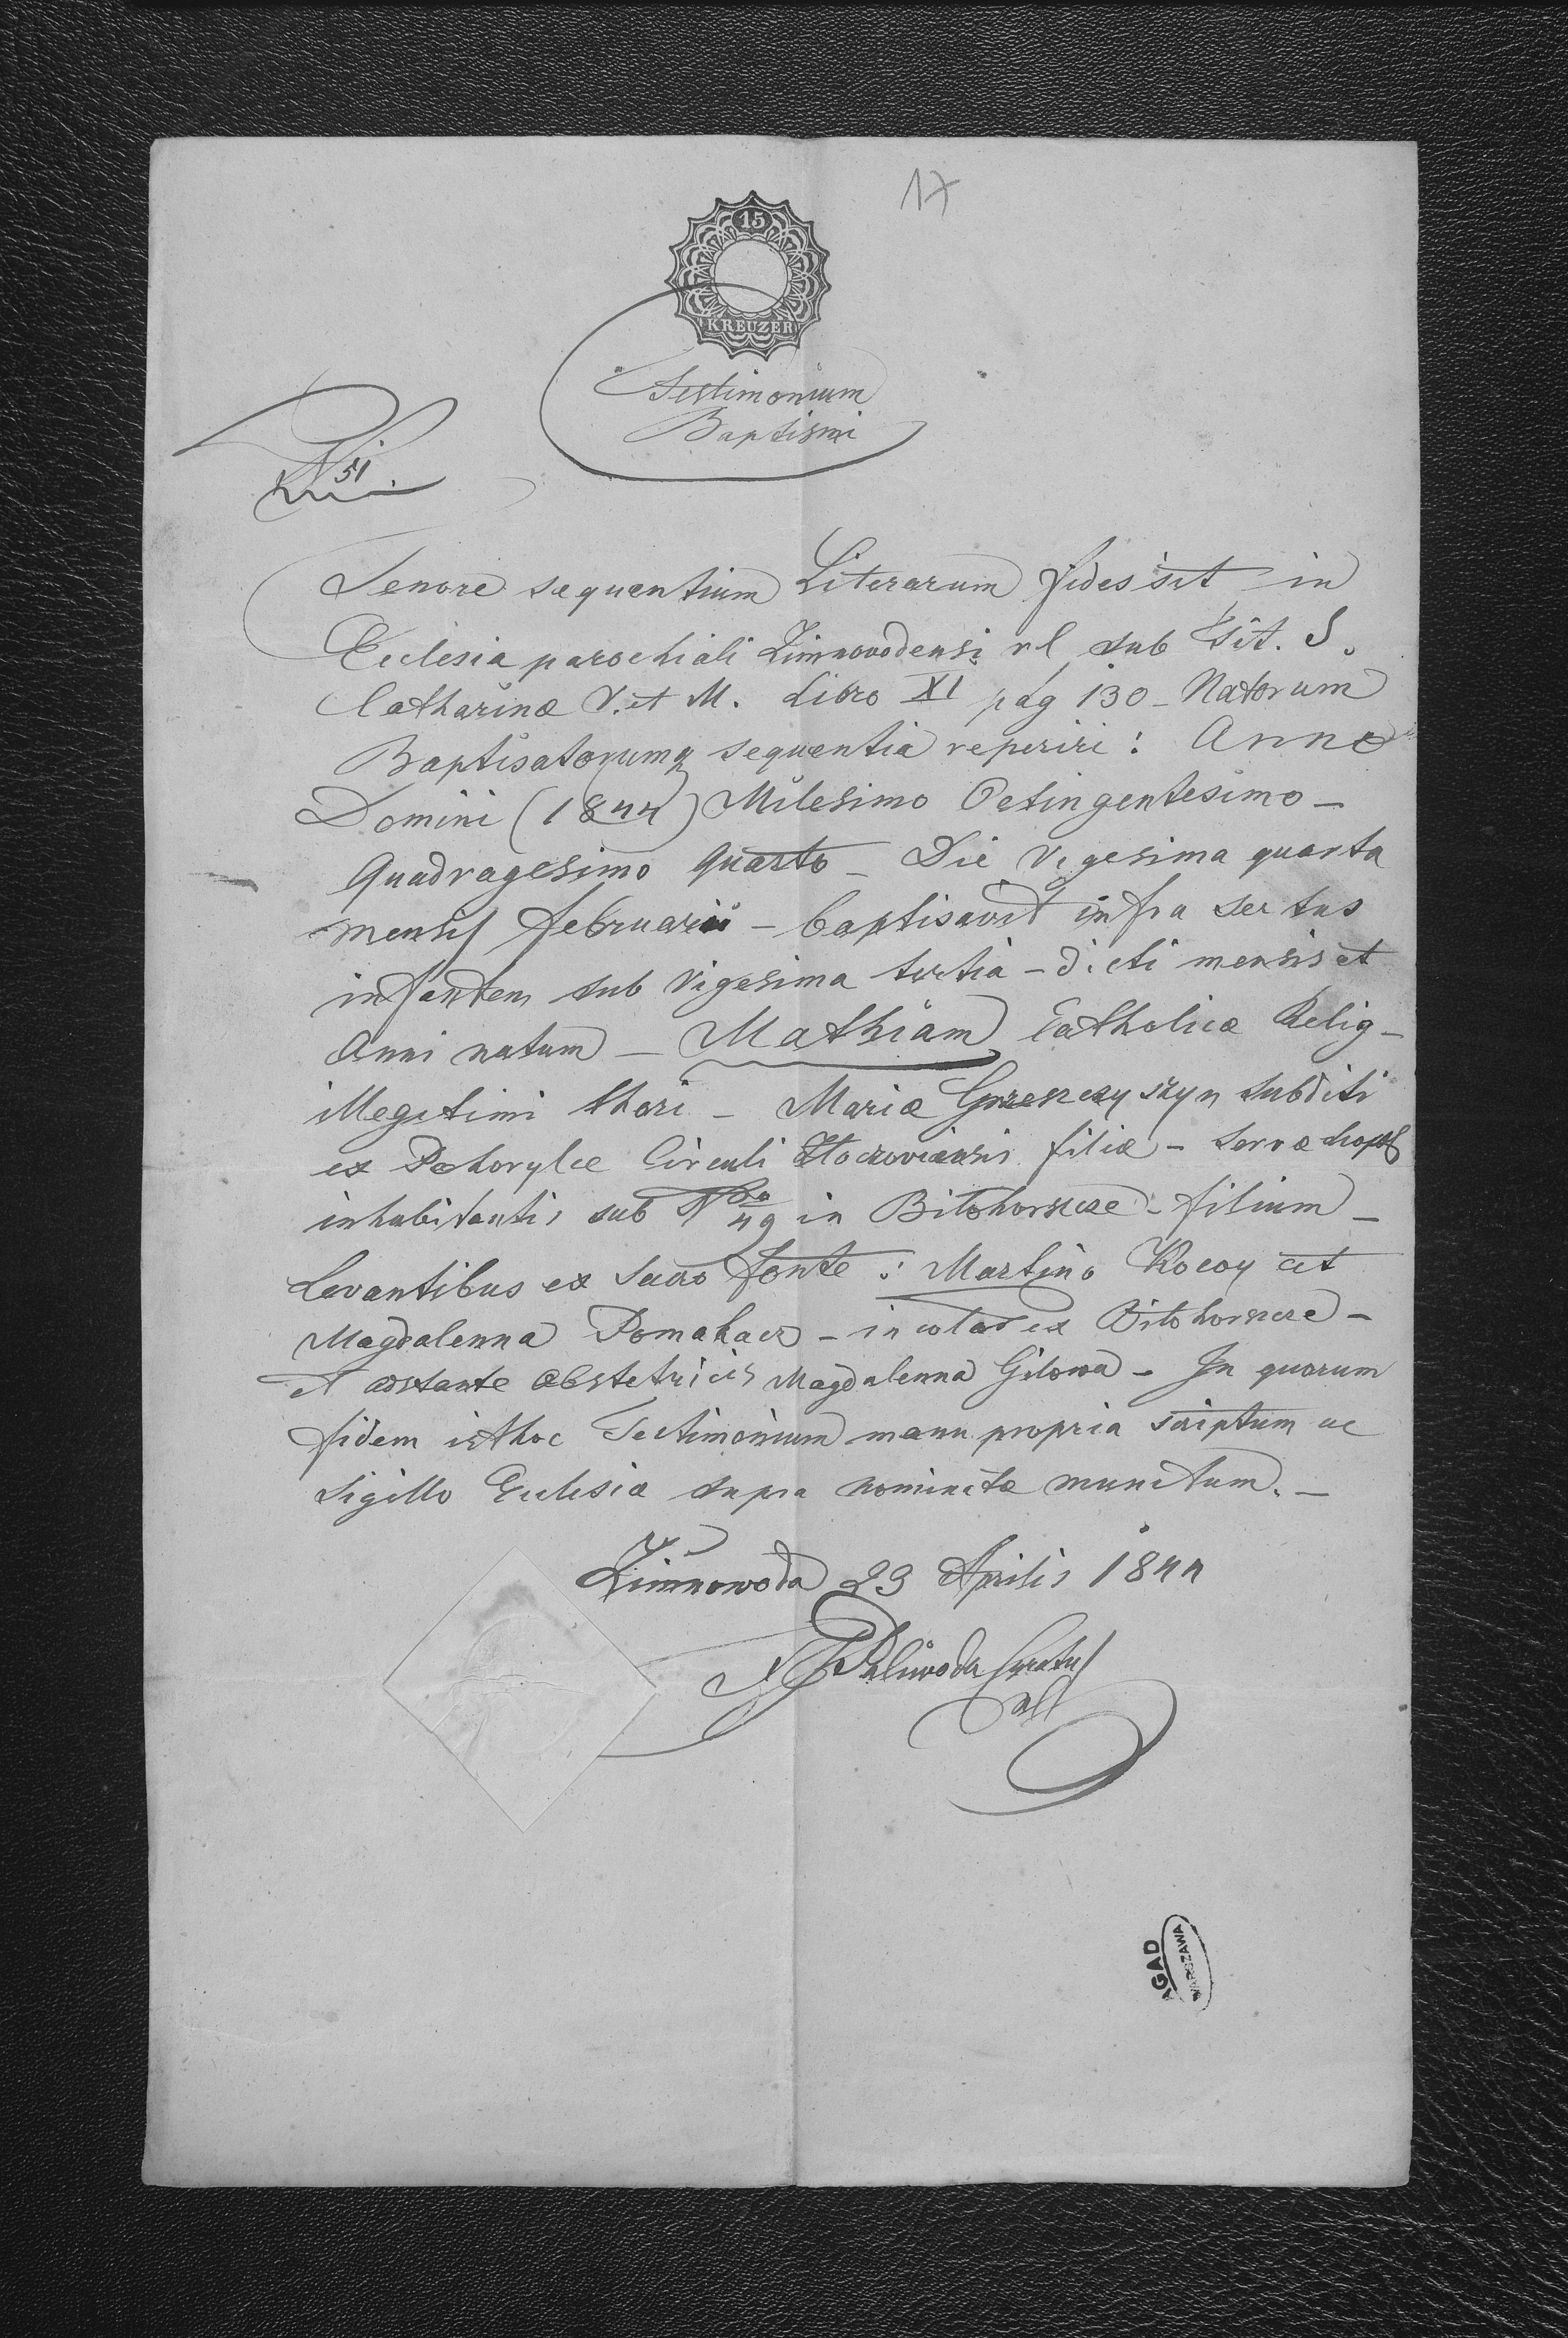 17
15
KREUZER
Testimonium
Baptismi
N 51
Tenore sequentium Literarum fides sit in
Eclesia parochiali Zimnovodensi rl sub Tit. S.
Catharinæ V. et M. Libro XI pag 130 - Natorum
Baptisatorumq sequentia reperiri : Anno
Domini (1844) Milesimo Octingentesimo -
Quadragesimo quarto - Die Vigesima quarta
mensis februarii - baptisavit infra scrtus
infantem sub Vigesima tertia - dicti mensis et
Anni natum - Mathiam Catholicæ Relig -
illegitimi thori - Mariæ subditi
ex Pohorylce Circuli Zloczoviensis filiæ - servæ
inhabitantis sub Nro 49 in Bilohorszcze - filium -
Levantibus ex Sacro fonte : Martino Kocoy et
Magdalenna Pomahacz - incolae ex Bilohorszcze -
et adstante Obstetricis Magdalenna Gilowa - In quorum
fidem isthoc Testimonium manu propria scriptum ac
Sigillo Eclesiæ supra nominatæ munitum. -
Zimnowoda 29 Aprilis 1844
Paliwoda Curatus
AGAD
WARSZAWA